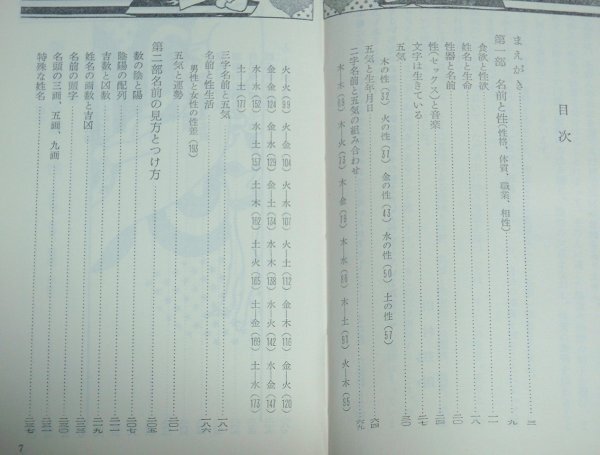 目次
まえがき……三
第一部 名前と性(性格、体質、職業、相性)……九
食欲と性欲……一一
姓名と生命……一八
性器と名前……二〇
性(セックス)と音楽……二四
文字は生きている……二七
五気……三〇
木の性(32) 火の性(37) 金の性(43) 水の性(50) 土の性(57)
五気と生年月日……六四
二字名前と五気の組み合わせ……六九
木—木(69) 木—火(73) 木—金(78) 木—水(86) 木—土(91) 火—木(95)
火—火(99) 火—金(104) 火—水(107) 火—土(112) 金—木(116) 金—火(120)
金—金(124) 金—水(129) 金—土(134) 水—木(138) 水—火(142) 水—金(147)
水—水(152) 水—土(157) 土—木(162) 土—火(165) 土—金(169) 土—水(173)
土—土(177)
三字名前と五気……一八一
名前と性生活……一八六
男性と女性の性差(193)
五気と運勢……二〇一
第二部 名前の見方とつけ方……二〇五
数の陰と陽……二〇七
陰陽の配列……二一一
吉数と凶数……二一九
姓名の画数と吉凶
名前の頭字……二三〇
名頭の三画、五画、九画……二三一
特殊な姓名……二三七
7